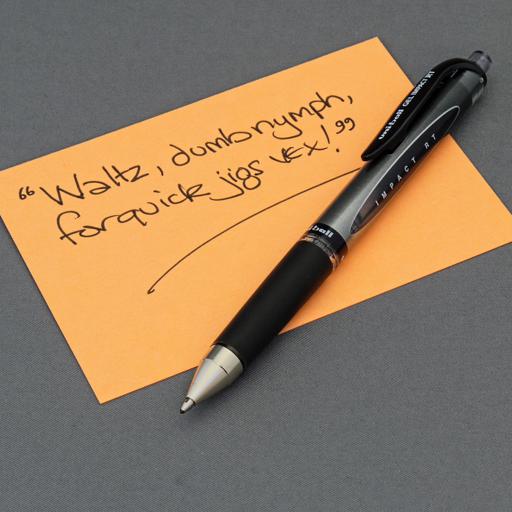 “Waltz, dumb nymph,
for quick jigs vex!”
uni-ball GEL IMPACT RT
IMPACT RT
uni-ball